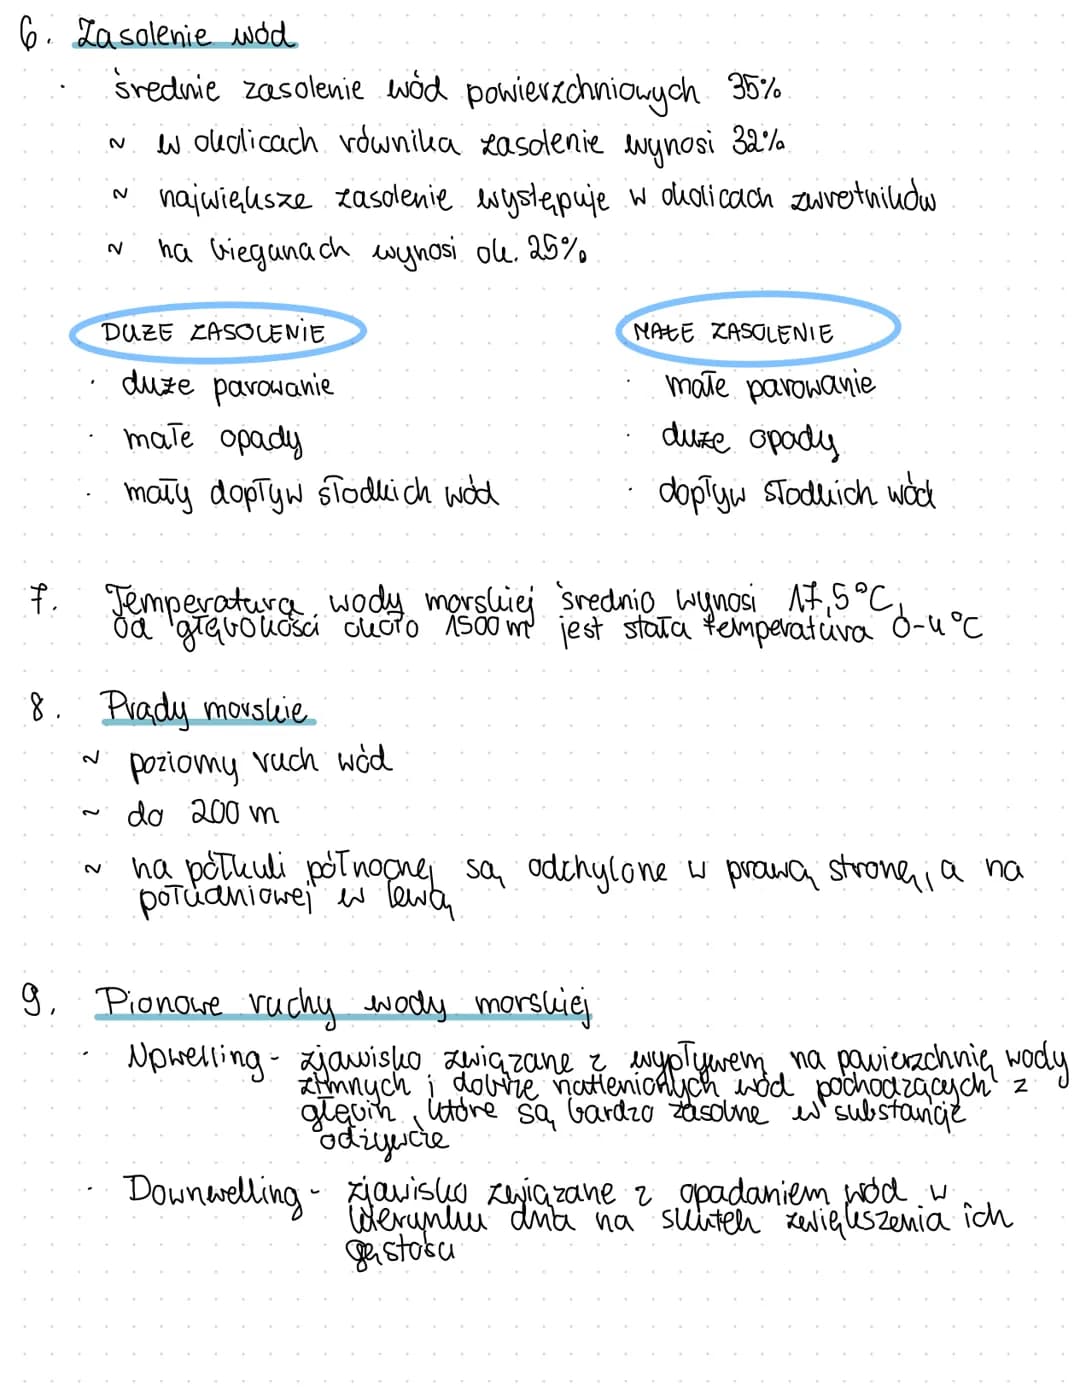 6. Zasolenie wód
· średnie zasolenie wód powierzchniowych 35%
~ w okolicach równika zasolenie wynosi 32%
~ największe zasolenie występuje w okolicach zwrotników
~ na biegunach wynosi ok. 25%
DUŻE ZASOLENIE
· duże parowanie
· małe opady
· mały dopływ słodkich wód
MAŁE ZASOLENIE
· małe parowanie
· duże opady
· dopływ słodkich wód
7. Temperatura wody morskiej średnio wynosi 17,5°C,
od głębokości około 1500 m jest stała temperatura 0-4°C
8. Prądy morskie
~ poziomy ruch wód
~ do 200 m
~ na półkuli północnej są odchylone w prawą stronę, a na
południowej w lewą
9. Pionowe ruchy wody morskiej
· Upwelling - zjawisko związane z wypływem na powierzchnię wody
zimnych i dobrze natlenionych wód pochodzących z
głębin, które są bardzo zasobne w substancje
odżywcze
· Downwelling - zjawisko związane z opadaniem wód w
kierunku dna na skutek zwiększenia ich
gęstości